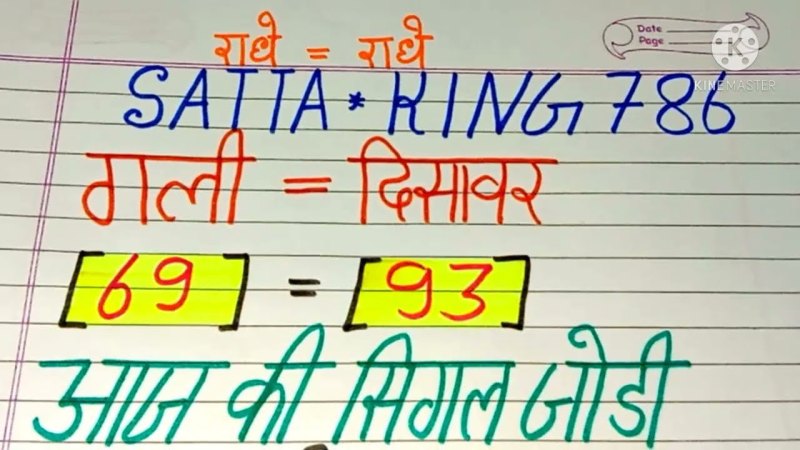 Date
Page
KINEMASTER
राधे = राधे
SATTA * KING 786
गली = दिसावर
[69] = [93]
आज की सिगल जोडी